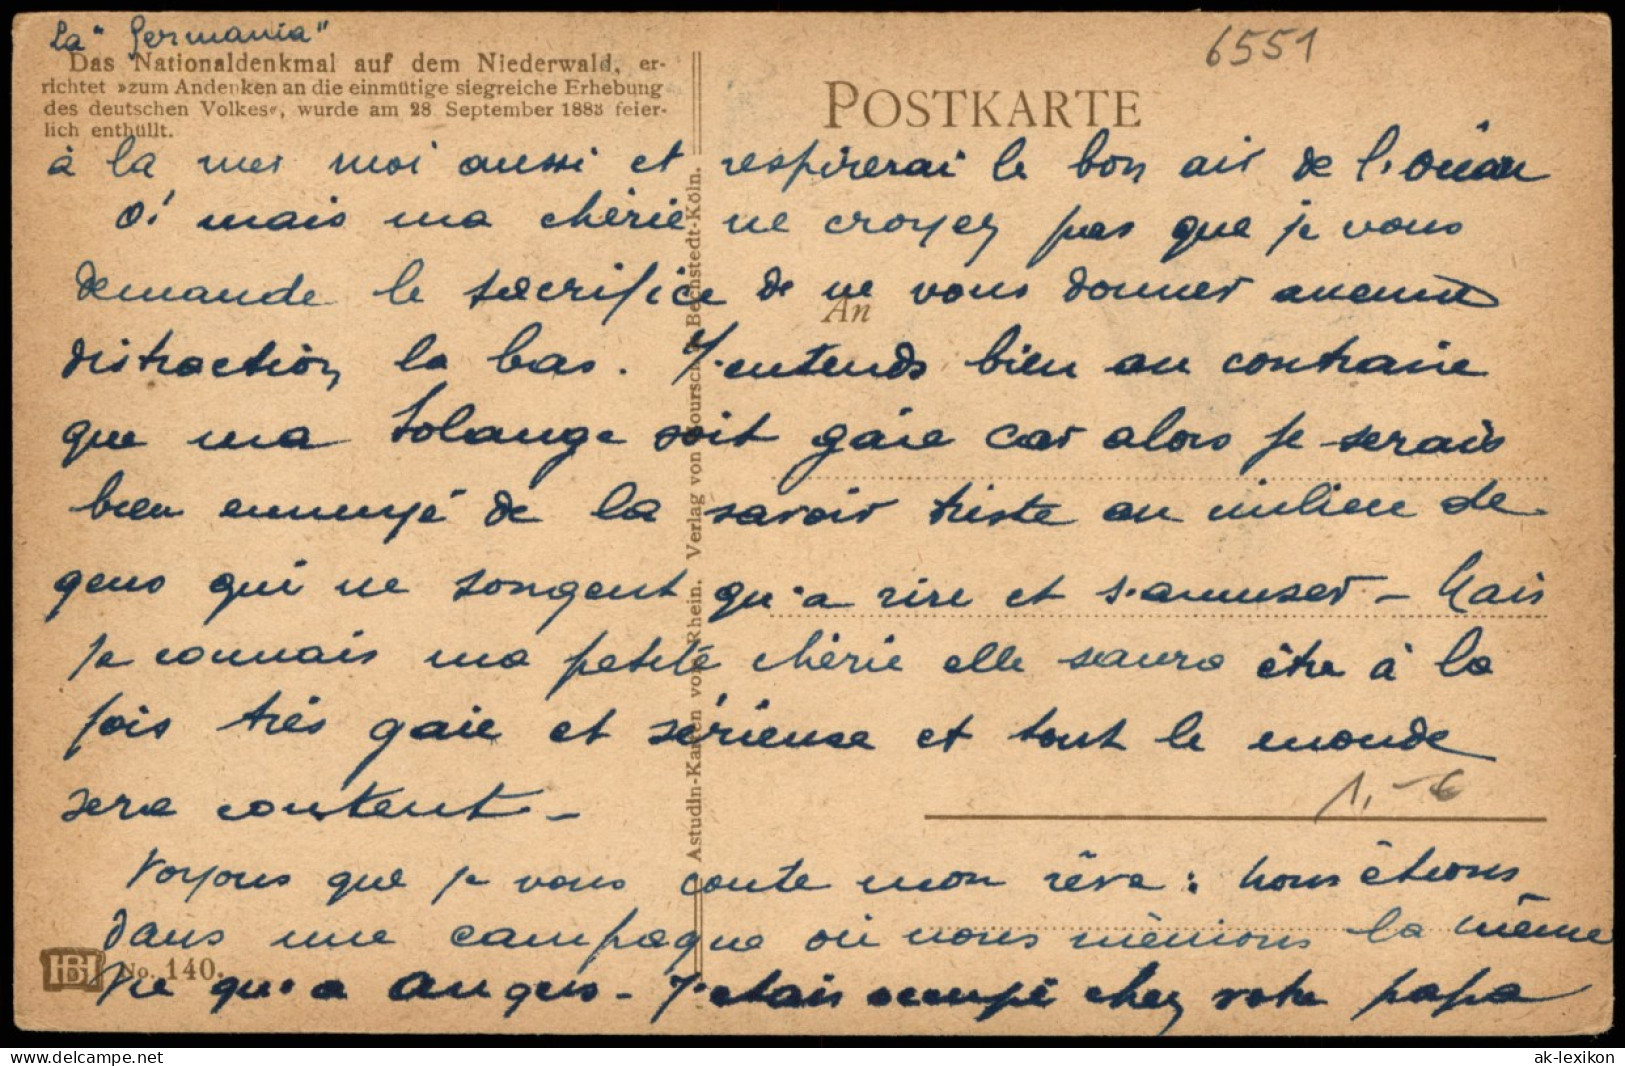 La "Germania"
6551
Das Nationaldenkmal auf dem Niederwald, er-
richtet »zum Andenken an die einmütige siegreiche Erhebung
des deutschen Volkes«, wurde am 28 September 1883 feier-
lich enthüllt.
POSTKARTE
à la mer moi aussi et respirerai le bon air de l'Océan
O! mais ma chérie ne croyez pas que je vous
demande le sacrifice de ne vous donner aucune
An
distraction la bas. J'entends bien au contraire
que ma Solange soit gaie car alors je serais
bien ennuyé de la savoir triste au milieu de
gens qui ne songent qu'a rire et s'amuser - Mais
je connais ma petite chérie elle saura être à la
fois très gaie et sérieuse et tout le monde
sera content -
1,-
Voyons que je vous conte mon rêve : nous étions
dans une campagne où nous menions la même
vie qu'a Angers - J'étais occupé chez votre papa
HBH No. 140.
Astudin-Karten vom Rhein. Verlag von Bechstedt-Köln.
ak-lexikon